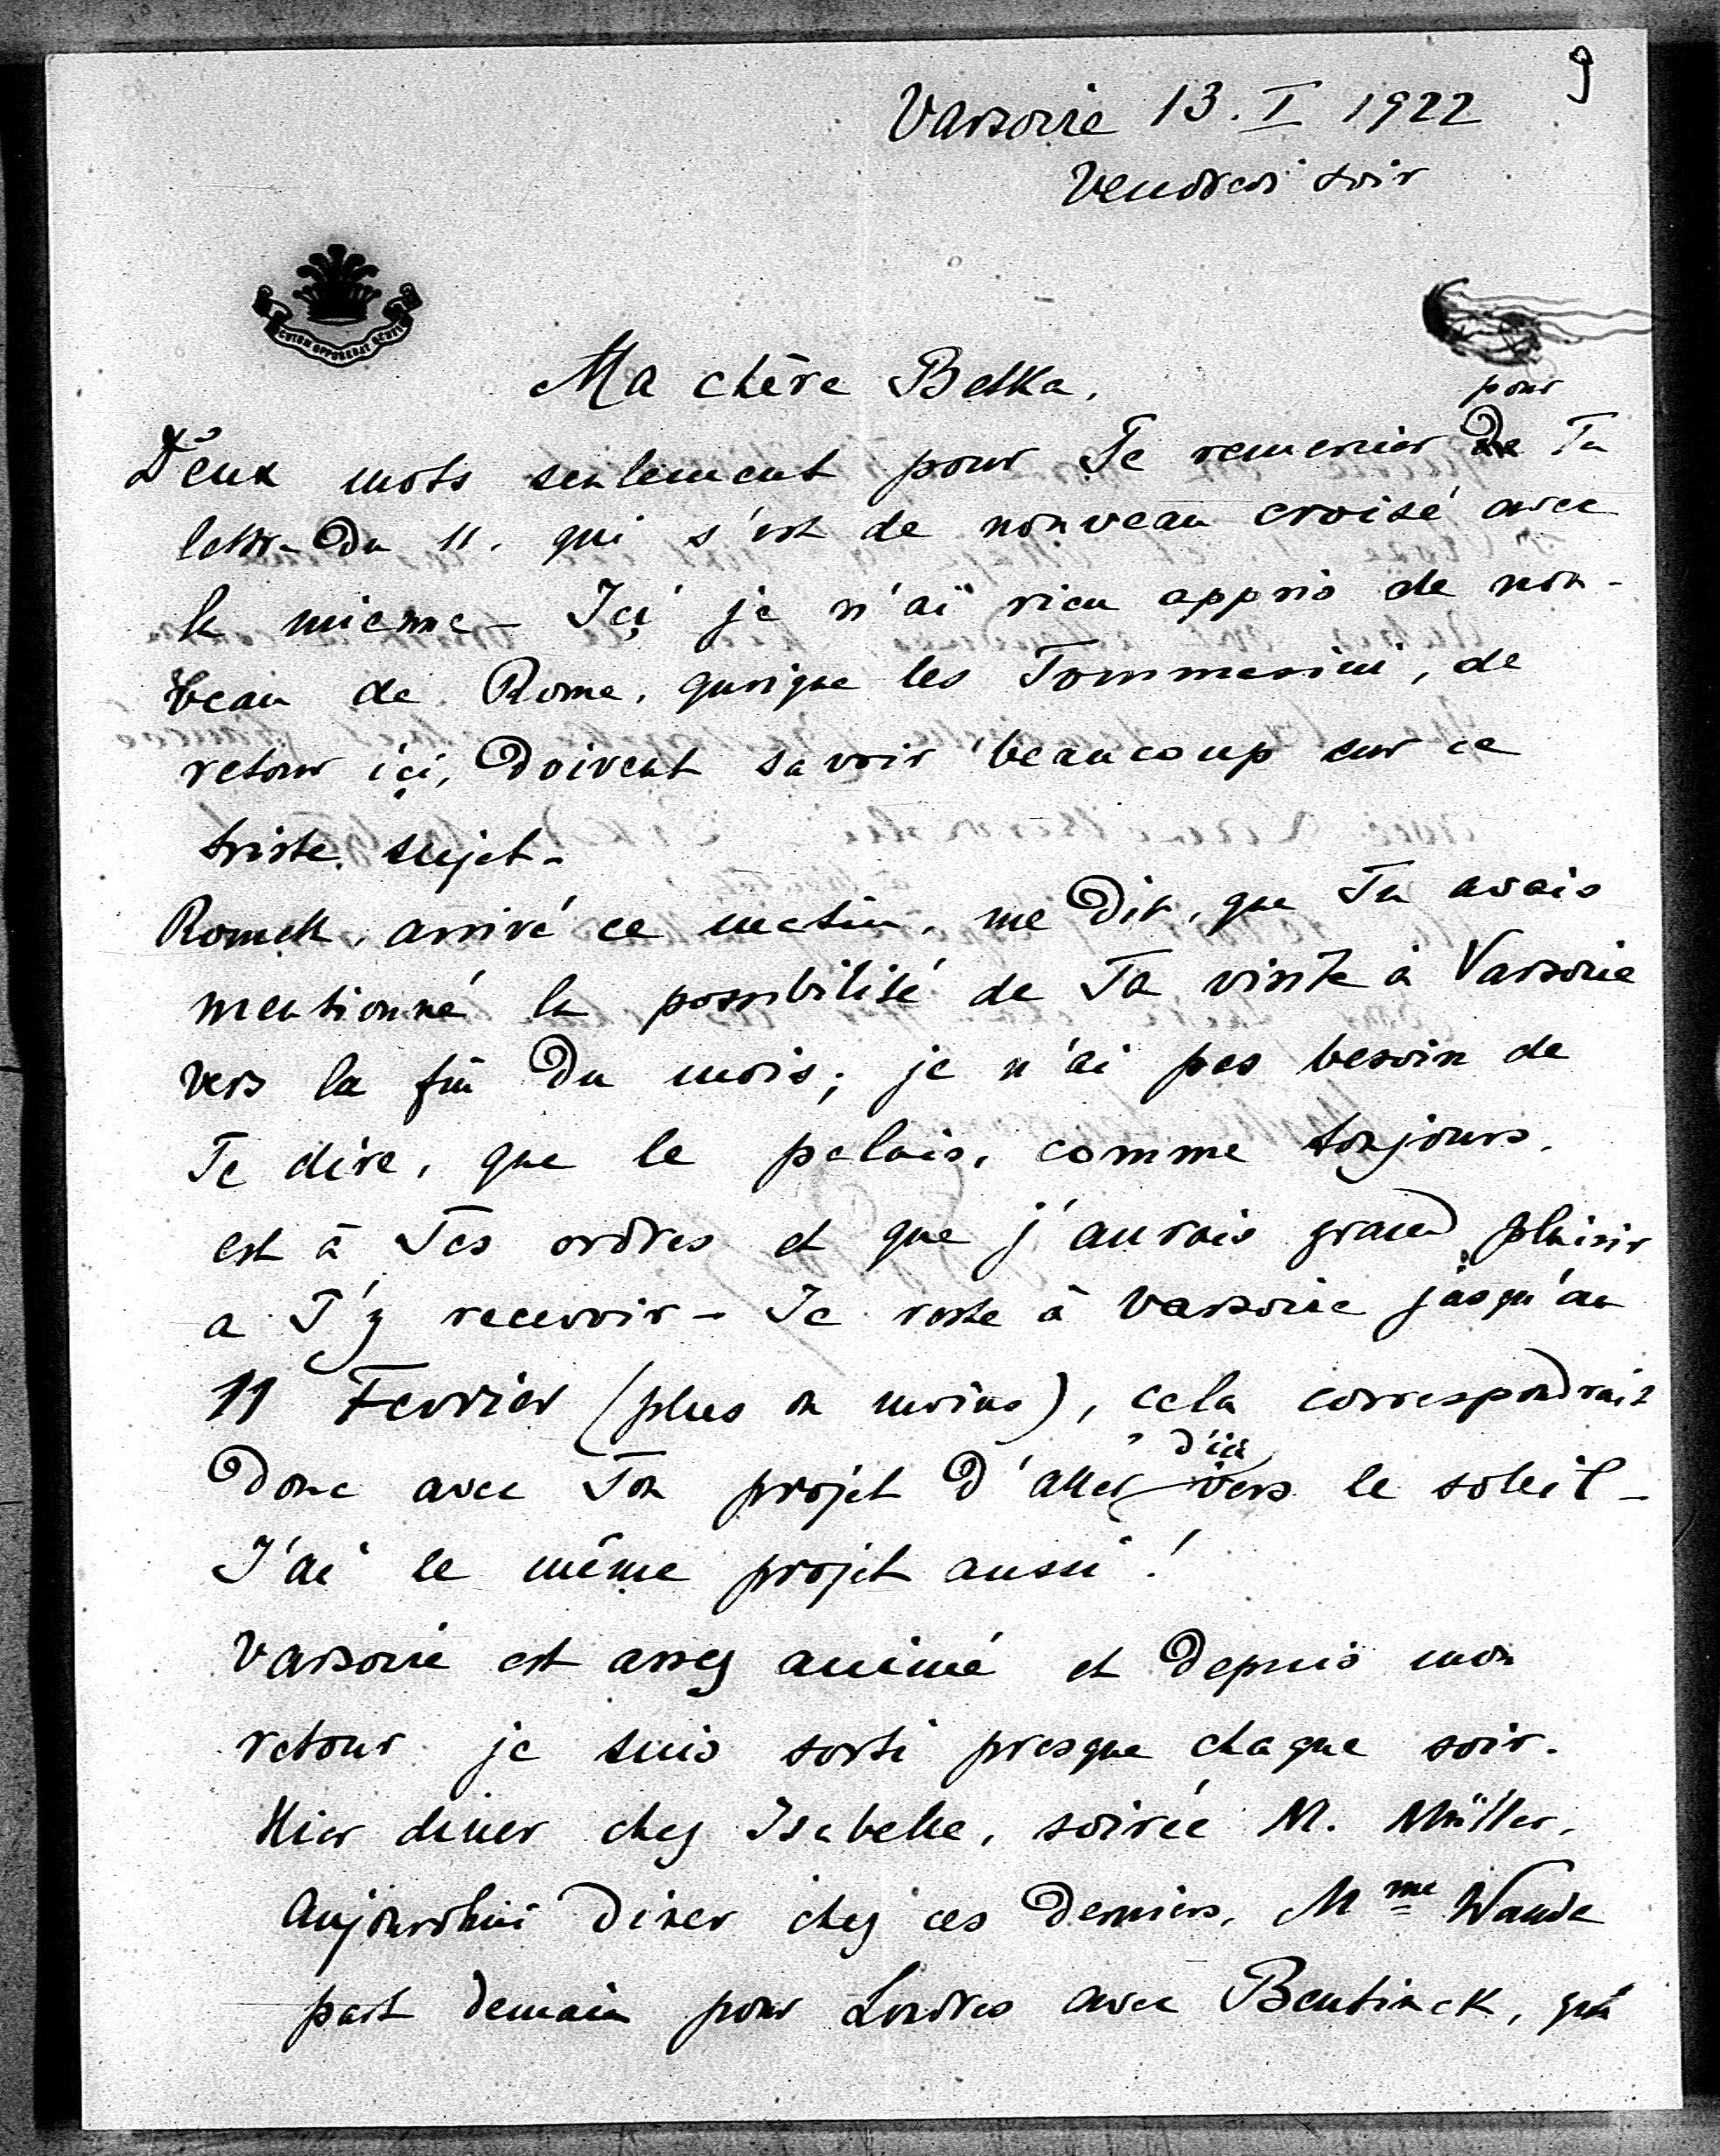 9
Varsovie 13. I 1922
Vendredi soir
Ma chère Betka,
pour
Deux mots seulement pour Te remercier de Ta
lettre du 11. qui s'est de nouveau croisé avec
la mienne – Ici je n'ai rien appris de nou-
veau de Rome, quoique les Tommasini, de
retour ici, doivent savoir beaucoup sur ce
triste sujet –
Romek, arrivé ce matin, me dit, que Tu avais
mentionné la possibilité de Ta visite à Varsovie
vers la fin du mois; je n'ai pas besoin de
Te dire, que le palais, comme toujours,
est à Tes ordres et que j'aurais grand plaisir
a T'y recevoir – Je reste à Varsovie jusqu'au
11 Fevrier (plus ou moins), cela correspondrait
d'ici
donc avec Ton projet d'aller vers le soleil –
J'ai le même projet aussi !
Varsovie est assez animé et depuis mon
retour je suis sorti presque chaque soir.
Hier diner chez Isabelle, soirée M. Müller,
Aujourdhui diner chez ces derniers, Mme Wanda
part demain pour Londres avec Bentinck, qui